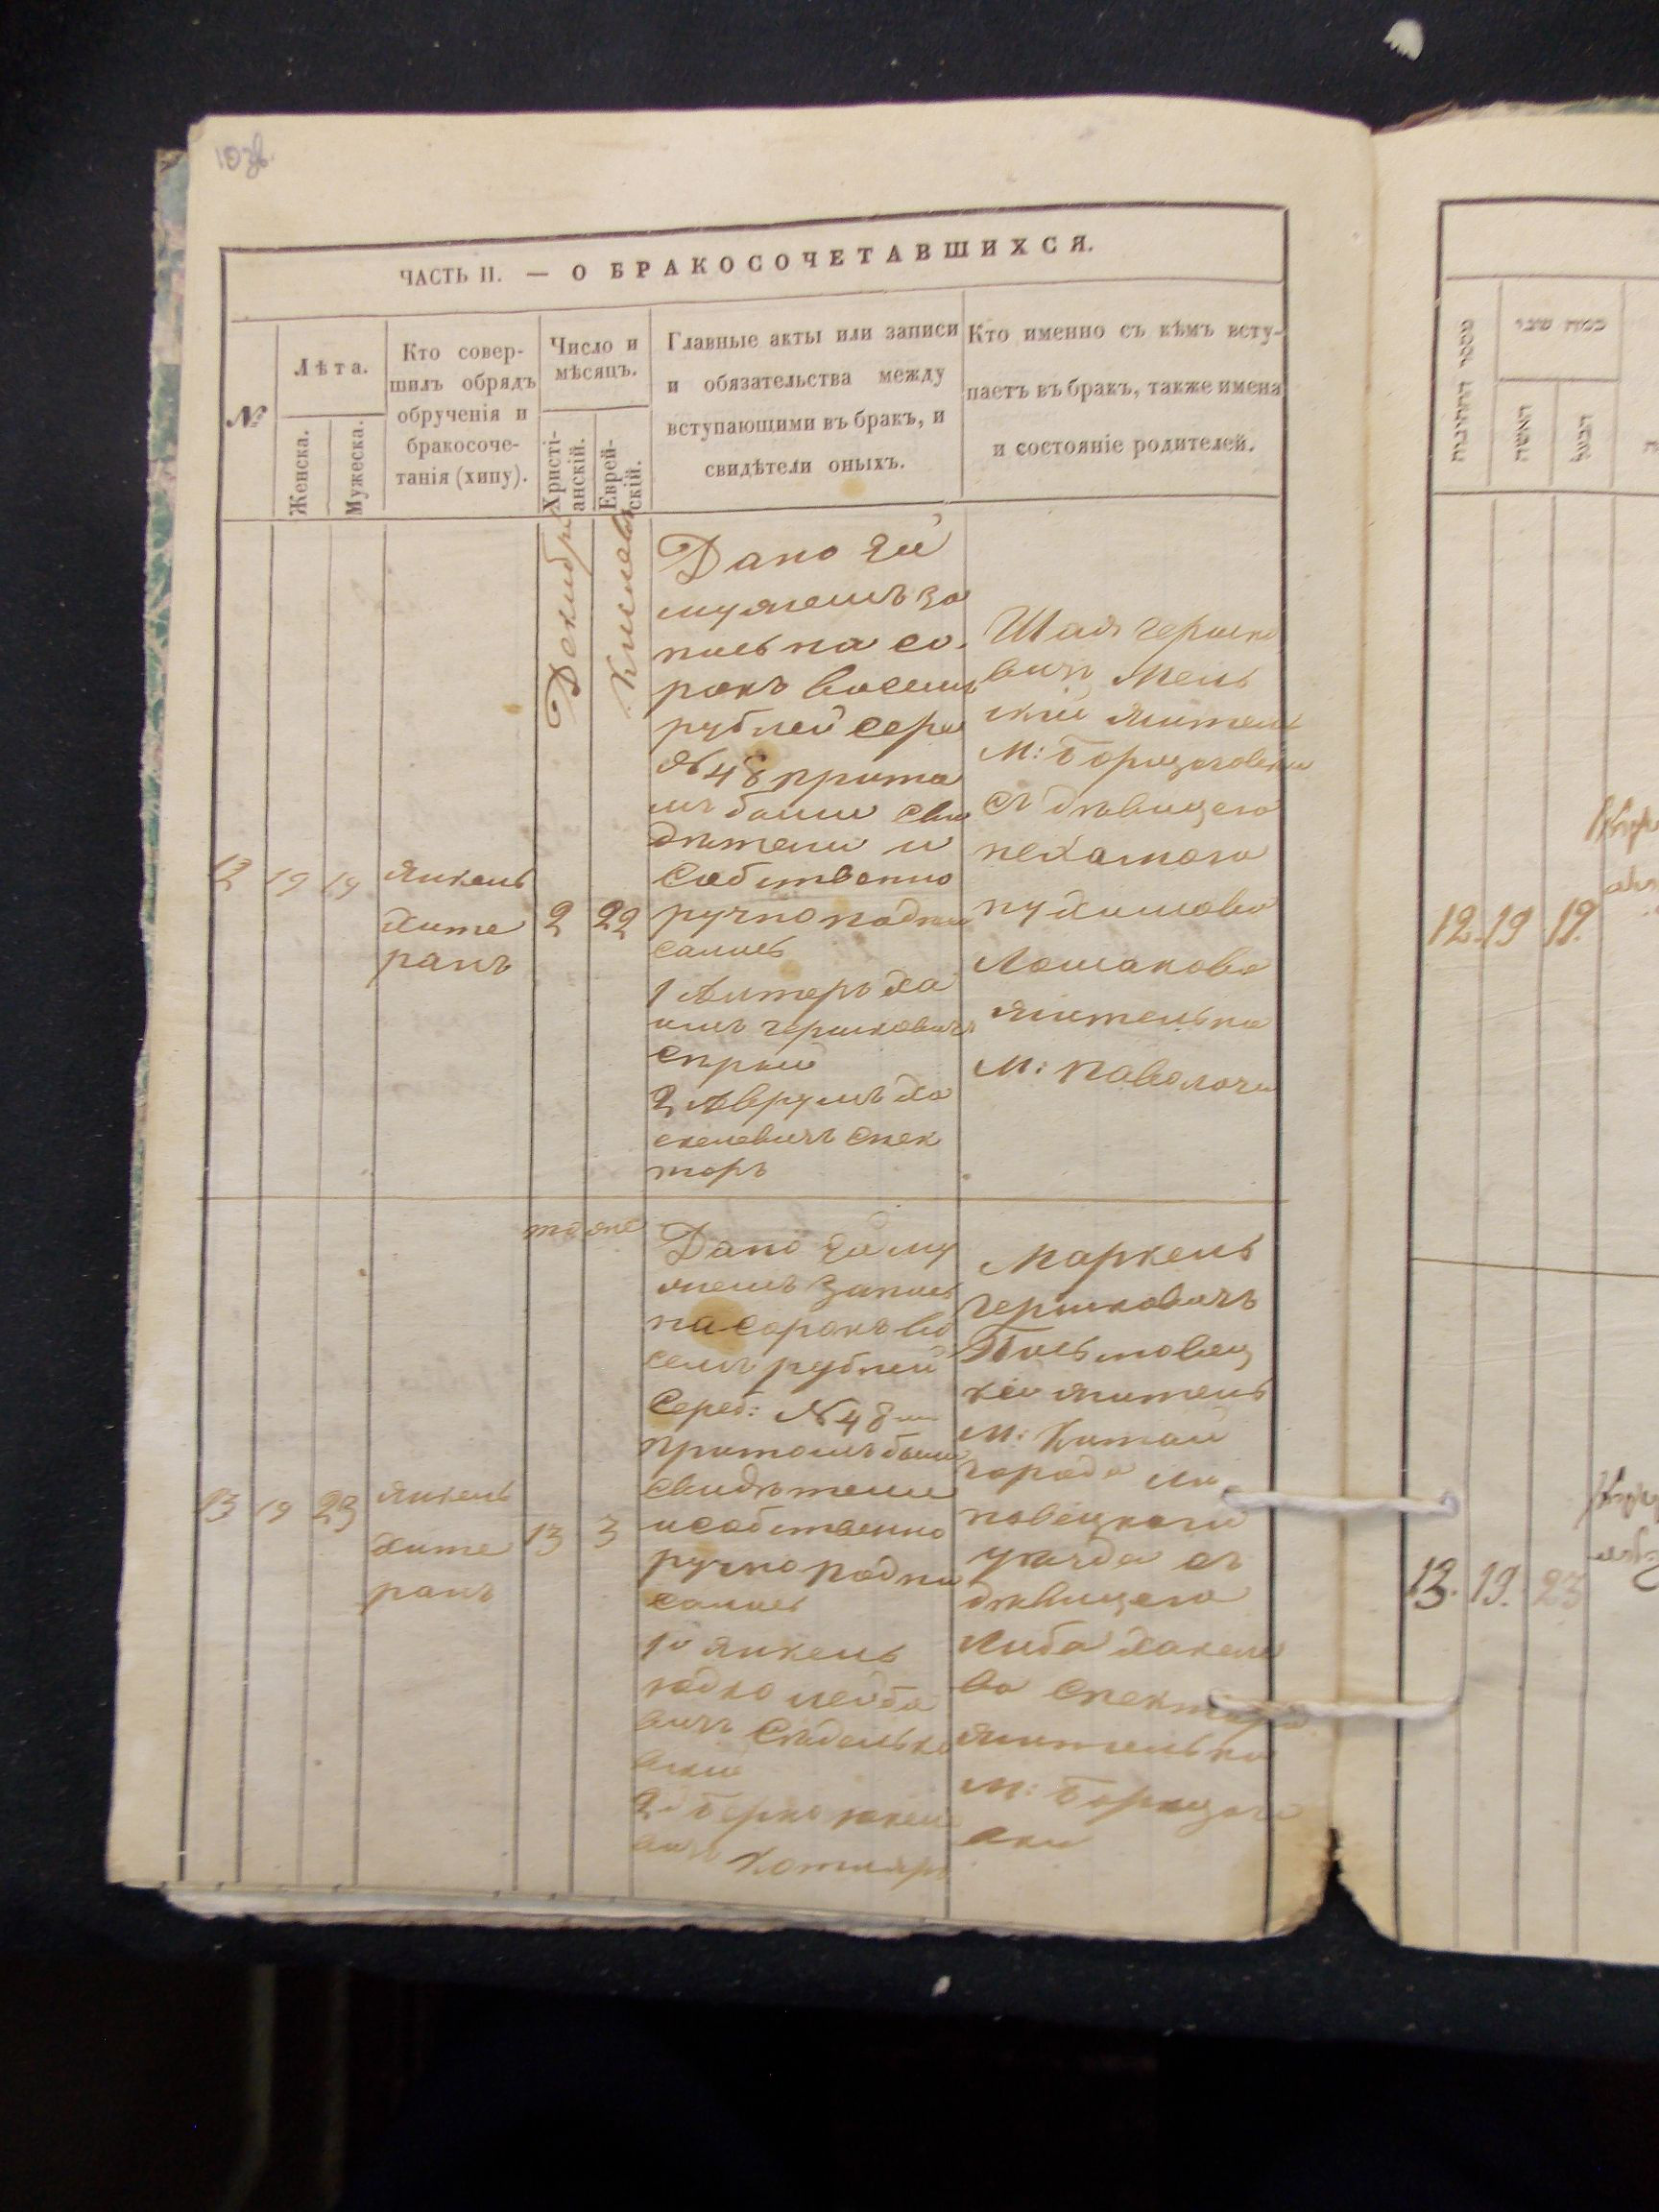 103об.
ЧАСТЬ II. — О БРАКОСОЧЕТАВШИХСЯ.
№
Лѣта.
Женска.
Мужеска.
Кто совер-
шилъ обрядъ
обрученія и
бракосоче-
танія (хипу).
Число и
мѣсяцъ.
Христі-
анскій.
Еврей-
скій.
Главные акты или записи
и обязательства между
вступающими въ бракъ, и
свидѣтели оныхъ.
Кто именно съ кѣмъ всту-
паетъ въ бракъ, также имена
и состояніе родителей.
Декабря
Кислевъ
12
19
19
Янкель
Хите
ранъ
2
22
Дано Ей
мужемъ за
пись на со-
рокъ восемь
рублей сере
№ 48 прито
мъ были сви
дѣтели и
собственно
ручно подпи
сались
1 Литеръ Ха
имъ Гершковичъ
2 Аврумъ Ха
скелевичъ Спек
торъ
Шая Гершко
вичъ Мель
кій житель
М: Борщаговки
съ дѣвицею
Нехамою
Нухимова
Лошакова
жителька
М: Паволочи
13
19
23
Янкель
Хите
ранъ
тоже
13
3
Дано Ей му
жемъ запись
на сорокъ во
семъ рублей
Сереб: № 48
притомъ были
свидѣтели
и собственно
ручно подпи
сались
1й Янкель
Юдко Лейбо
вичъ
2й Берко
вичъ Котляръ
Маркель
Гершковичъ
житель
М: Китай
города
повецкого
уѣзда съ
дѣвицею
Либа Хакеле
ва Спектора
жителька
М: Борщаго
вки
מספר החתונות
כמה שני
האשה
הבעל
12.
19
19.
13.
19.
23